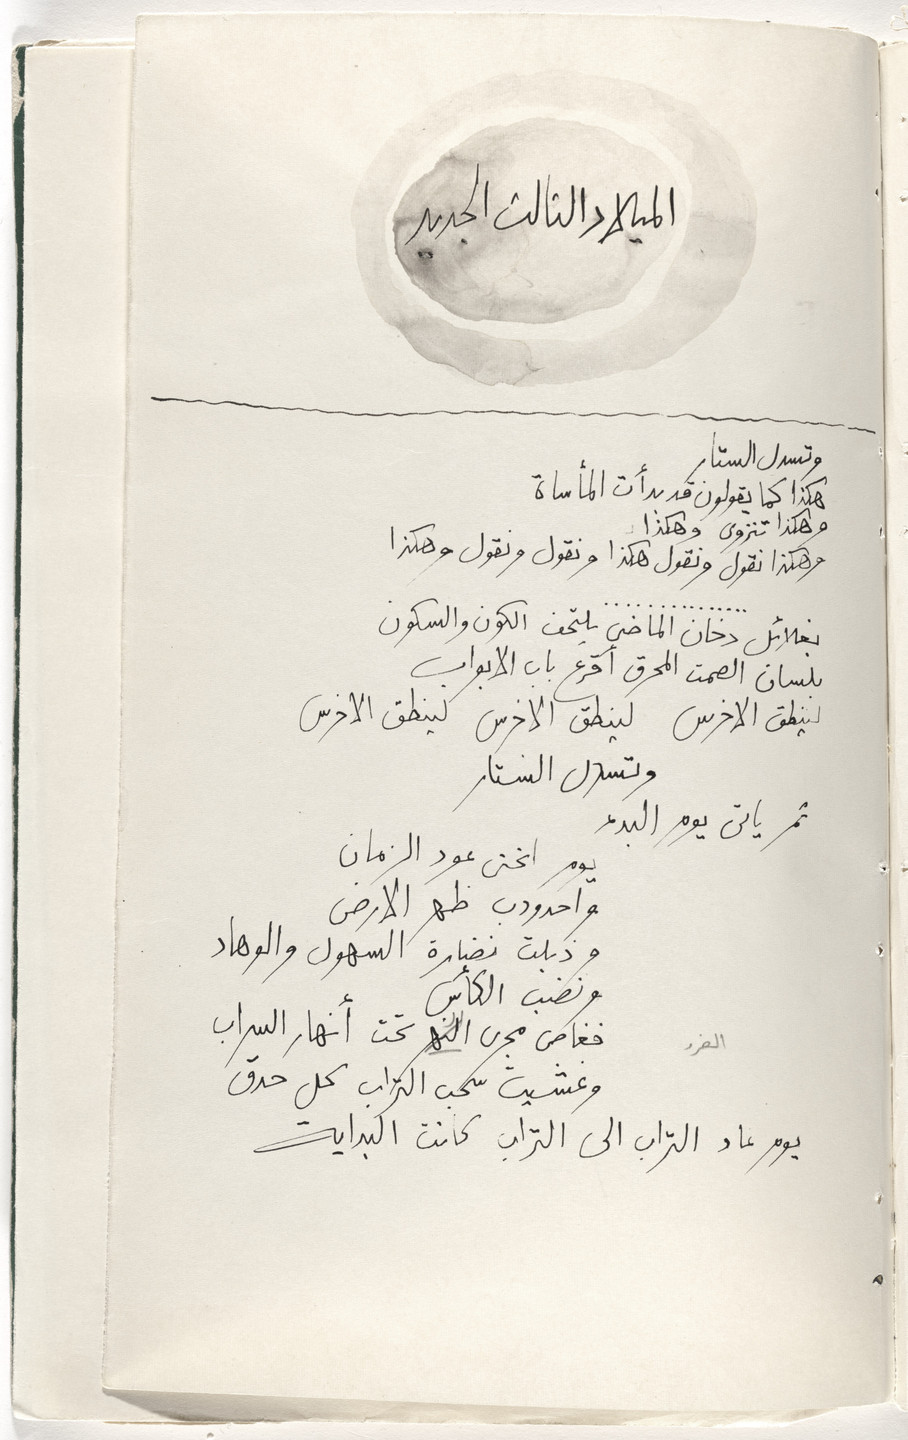 الميلاد الثالث الجديد
وتسدل الستار
هكذا كما يقولون قد بدأت المأساة
وهكذا تنزوى وهكذا
وهكذا نقول ونقول هكذا ونقول ونقول وهكذا
..............
بغلائل دخان الماضي يلتحف الكون والسكون
بلسان الصمت المحرق أقرع باب الابواب
لينطق الاخرس لينطق الاخرس لينطق الاخرس
وتسدل الستار
ثم ياتى يوم البدء
يوم انحنى عود الزمان
واحدودب ظهر الارض
وذبلت نضارة السهول والوهاد
ونضب الكأس
فغاص مجرى تحت أنهار السراب
وغشيت سحب التراب كحل حدق
يوم عاد التراب الى التراب كانت البدايات